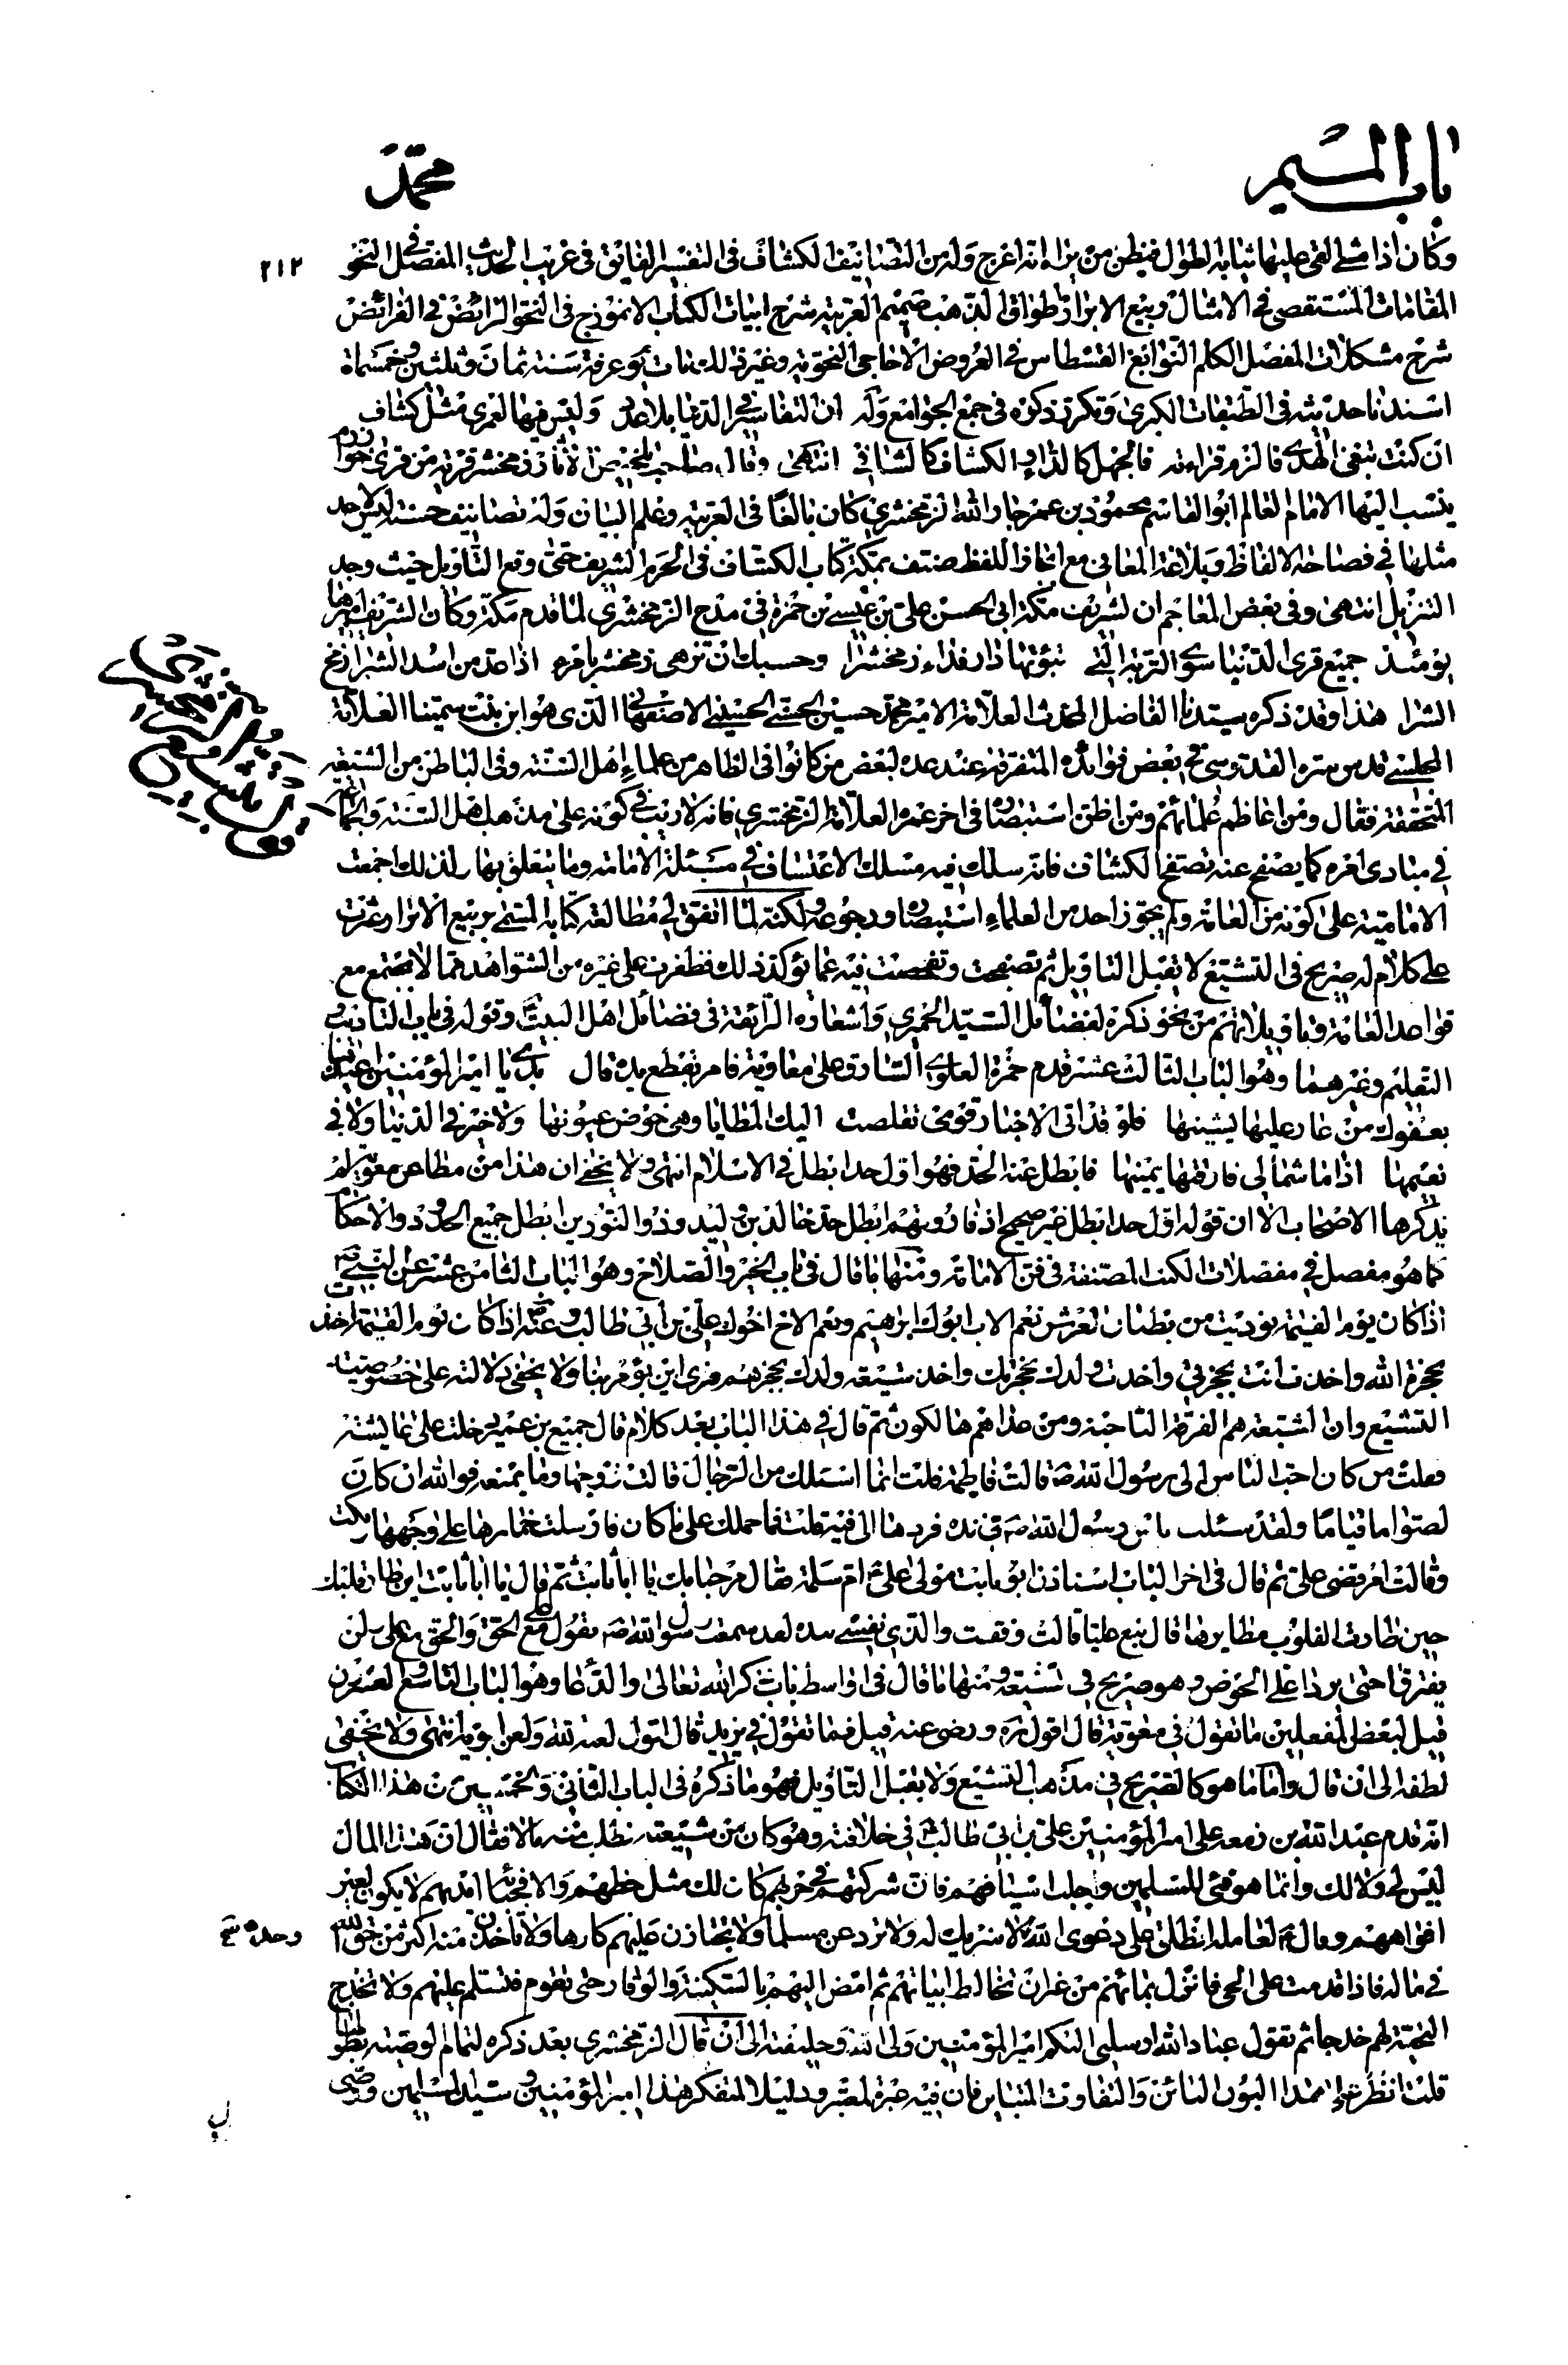 باب الميم
محمد
وكان اذا مشى القى عليها ثيابه الطوال فيظن من يراه انه اعرج وله من التصانيف الكشاف فى التفسير الفايق فى غريب الحديث المفصل فى النحو
٢١٢
المقامات المستقصى فى الامثال ربيع الابرار اطواق الذهب صميم العربية شرح ابيات الكتاب الانموذج فى النحو الرائض فى الفرائض
شرح مشكلات المفصل الكلم النوابغ القسطاس فى العروض الاحاجى النحوية وغير ذلك مات يوم عرفة سنة ثمان وثلثين وخمسماة
اسندنا حديثه فى الطبقات الكبرى وتكرر ذكره فى جمع الجوامع وله ان التفاسير فى الدنيا بلا عدد وليس فيها لعمرى مثل كشاف
ان كنت تبغى الهدى فالزم قراءته فالجهل كالداء والكشاف كالشافى انتهى وقال صاحب تلخيص الاثار زمخشر قرية من قرى خوارزم
ينسب اليها الامام العالم ابو القاسم محمود بن عمر جار الله الزمخشرى كان بالغا فى العربية وعلم البيان وله تصانيف حسنة ليس لاحد
مثلها فى فصاحة الالفاظ وبلاغة المعانى مع ايجاز اللفظ صنف بمكة كتاب الكشاف فى الحرم الشريف حتى وقع التاويل حيث وجد
التنزيل انتهى وفى بعض المعاجم ان لشريف مكة ابى الحسن على بن عيسى بن حمزة فى مدح الزمخشرى لما قدم مكة وكان الشريف اميرها
يومئذ جميع قرى الدنيا سوى القرية التى تبوئها دارا فداء زمخشرا وحسبك ان تزهى زمخشر بامرء اذا عد من اسد الشرا زمخ
الشرا هذا وقد ذكره سيدنا الفاضل المحدث العلامة الامير محمد حسين الحسنى الحسينى الاصفهانى الذى هو ابن بنت سمينا العلامة
المجلسى قدس سره القدوسى فى بعض فوائده المتفرقة عند عده لبعض من كانوا فى الظاهر من علماء اهل السنة وفى الباطن من الشيعة
المحققة فقال ومن اعاظم علمائهم ومن اظن استبصاره فى اخر عمره العلامة الزمخشرى فانه لا ريب فى كونه على مذهب اهل السنة والجماعة
فى مبادى امره كما يفصح عنه تصفح الكشاف فانه سلك فيه مسلك الاعتساف فى مسئلة الامامة وما يتعلق بها ولذلك اجمعت
الامامية على كونه من العامة ولم يجوز احد من العلماء استبصاره ورجوعه ولكنه لما اتفق لى مطالعة كتابه المسمى بربيع الابرار عثرت
على كلام له صريح فى التشيع لا تقبل التاويل ثم تصفحت وتفحصت فيه عما يؤكد ذلك فظفرت على غيره من الشواهد مما لا يجتمع مع
قواعد العامة وتاويلاتهم من نحو ذكره لفضائل السيد الحميرى واشعاره الرائقة فى فضائل اهل البيت وقوله فى باب التاديب و
التعليم وغيرهما وهو الباب الثالث عشر قدم حمزة العلوى السارق على معاوية فامر بقطع يده قال يدى يا امير المؤمنين اعيذها
بعفوك من عار عليها يشينها فلو قد اتى الاخبار قومى تقلصت اليك المطايا وهى خوض عيونها ولا خير فى الدنيا ولا فى
نعيمها اذا ما شمالى فارقتها يمينها فابطل عنه الحد فهو اول حد ابطل فى الاسلام انتهى ولا يخفى ان هذا من مطاعن معوية لم
يذكرها الاصحاب الا ان قوله اول حد ابطل غير صحيح اذ فاروقهم ابطل حد خالد بن وليد وذو النورين ابطل جميع الحدود والاحكام
كما هو مفصل فى مفصلات الكتب المصنفة فى فن الامامة ومنها ما قال فى باب الخير والصلاح وهو الباب الثامن عشر عن النبى
اذا كان يوم القيمة نوديت من بطنان العرش نعم الاب ابوك ابرهيم ونعم الاخ اخوك على بن ابى طالب وعنه اذا كان يوم القيمة اخذت
بحجزة الله واخذت انت بحجزتى واخذت ولدك بحجزتك واخذ شيعة ولدك بحجزهم فترى اين يؤمر بنا ولا يخفى دلالته على خصوصية
التشيع وان الشيعة هم الفرقة الناجية ومن عداهم هالكون ثم قال فى هذا الباب بعد كلام قال جميع بن عمير دخلت على عايشة
فقلت من كان احب الناس الى رسول الله ص قالت فاطمة قلت انما اسئلك من الرجال قالت زوجها وما يمنعه فوالله ان كان
لصواما قواما ولقد سئلت رسول الله ص فى يده فردها الى فيه قلت فما حملك على ما كان فارسلت خمارها على وجهها وبكت
وقالت امر قضى على ثم قال فى اخر الباب استاذن ابو ثابت مولى على ع ام سلمة فقال مرحبا بك يا ابا ثابت ثم قال يا ابا ثابت اين طار قلبك
حين طارت القلوب مطايرها قال تبع عليا قالت وفقت والذى نفسى بيده لقد سمعت رسول الله ص يقول على مع الحق والحق مع على لن
يفترقا حتى يردا على الحوض وهو صريح فى تشيعه ومنها ما قال فى اواسط باب ذكر الله تعالى والدعا وهو الباب التاسع العشرين
قيل لبعض ما تقول فى معوية قال اقول ره ورضى عنه قيل فما تقول فى يزيد قال اقول لعنه الله ولعن ابويه انتهى ولا يخفى
لطفه الى ان قال واما ما هو كالصريح فى مذهب التشيع ولا يقبل التاويل فهو ما ذكره فى الباب الثانى والخمسين من هذا الكتاب
انه قدم عبد الله بن زمعه على امير المؤمنين على بن ابى طالب ع فى خلافته وهو كان من شيعته يطلب منه مالا فقال ان هذا المال
ليس لى ولا لك وانما هو فئ للمسلمين وجلب اسيافهم فان شركتهم فى حربهم كان لك مثل حظهم والا فجناة ايديهم لا يكون لغير
افواههم وقال ع لعامله انطلق على تقوى الله لا شريك له ولا تروعن مسلما ولا تجتازن عليهم كارها ولا تاخذن منه اكثر من حق الله
وحده
فى ماله فاذا قدمت على الحى فانزل بمائهم من غير ان تخالط ابياتهم ثم امض اليهم بالسكينة والوقار حتى تقوم فتسلم عليهم ولا تخدج
التحية لهم خدجا ثم تقول عباد الله ارسلنى اليكم امير المؤمنين ولى الله وخليفته الى ان قال الزمخشرى بعد ذكره لتمام الوصية بطولها
قلت انظر على هذا البون البائن والتفاوت المتباين فان فيه عبرة لمعتبر ودليلا لمتفكر هذا امير المؤمنين وسيد المسلمين ووصى